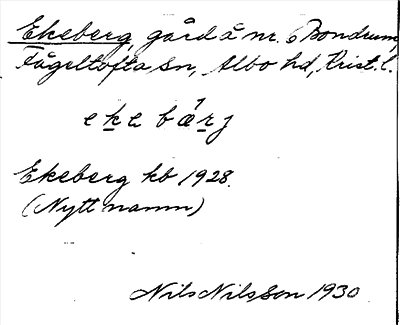 Ekeberg, gård å nr. 6 Bondrum,
Fågeltofta sn, Albo hd, Krist. l.
ekebærj
Ekeberg kb 1928.
(Nytt namn)
Nils Nilsson 1930